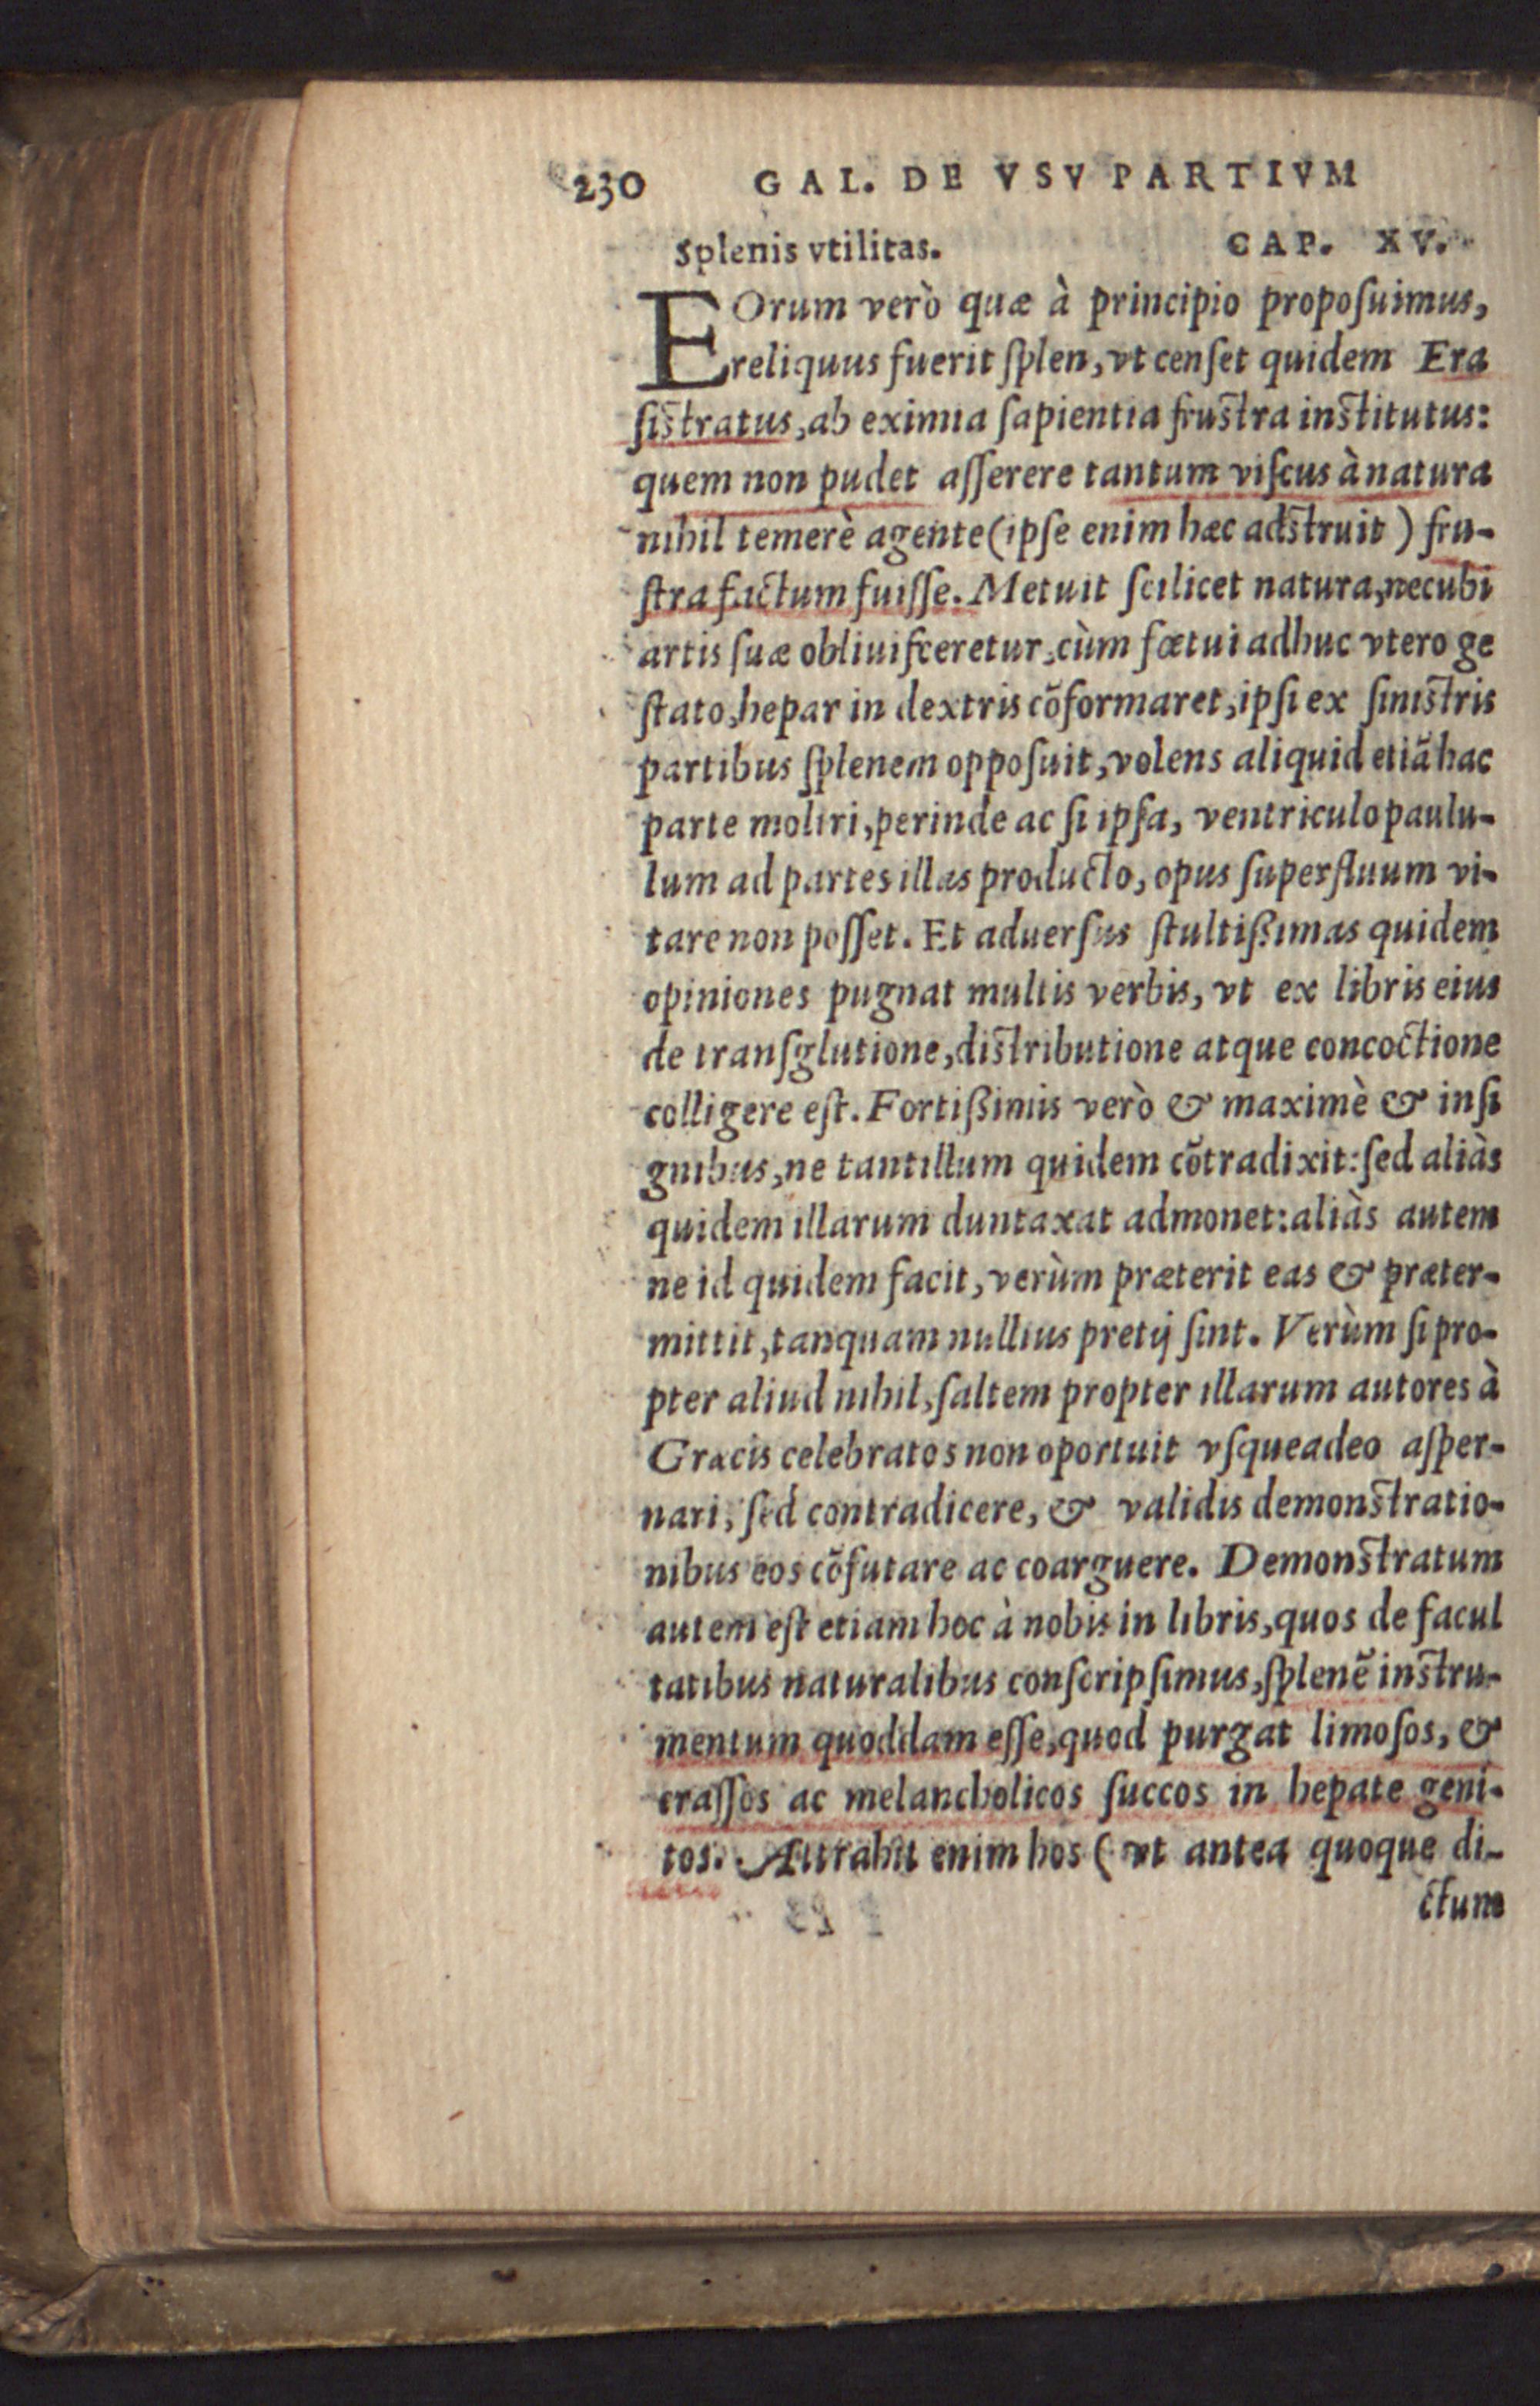 230 GAL. DE VSV PARTIVM
Splenis vtilitas. CAP. XV.
EOrum verò quæ à principio proposuimus,
reliquus fuerit splen, vt censet quidem Era
sistratus, ab eximia sapientia frustra institutus:
quem non pudet asserere tantum viscus à natura
nihil temerè agente (ipse enim hæc adstruit) fru-
stra factum fuisse. Metuit scilicet natura, necubi
artis suæ obliuisceretur, cùm fœtui adhuc vtero ge
stato, hepar in dextris cõformaret, ipsi ex sinistris
partibus splenem opposuit, volens aliquid etiã hac
parte moliri, perinde ac si ipsa, ventriculo paulu-
lum ad partes illas producto, opus superfluum vi-
tare non posset. Et aduersus stultißimas quidem
opiniones pugnat multis verbis, vt ex libris eius
de transglutione, distributione atque concoctione
colligere est. Fortißimis verò & maximè & insi
gnibus, ne tantillum quidem cõtradixit: sed aliàs
quidem illarum duntaxat admonet: aliàs autem
ne id quidem facit, verùm præterit eas & præter-
mittit, tanquam nullius pretij sint. Verùm si pro-
pter aliud nihil, saltem propter illarum autores à
Græcis celebratos non oportuit vsqueadeo asper-
nari, sed contradicere, & validis demonstratio-
nibus eos cõfutare ac coarguere. Demonstratum
autem est etiam hoc à nobis in libris, quos de facul
tatibus naturalibus conscripsimus, splenẽ instru-
mentum quoddam esse, quod purgat limosos, &
crassos ac melancholicos succos in hepate geni-
tos. Attrahit enim hos (vt antea quoque di-
ctum